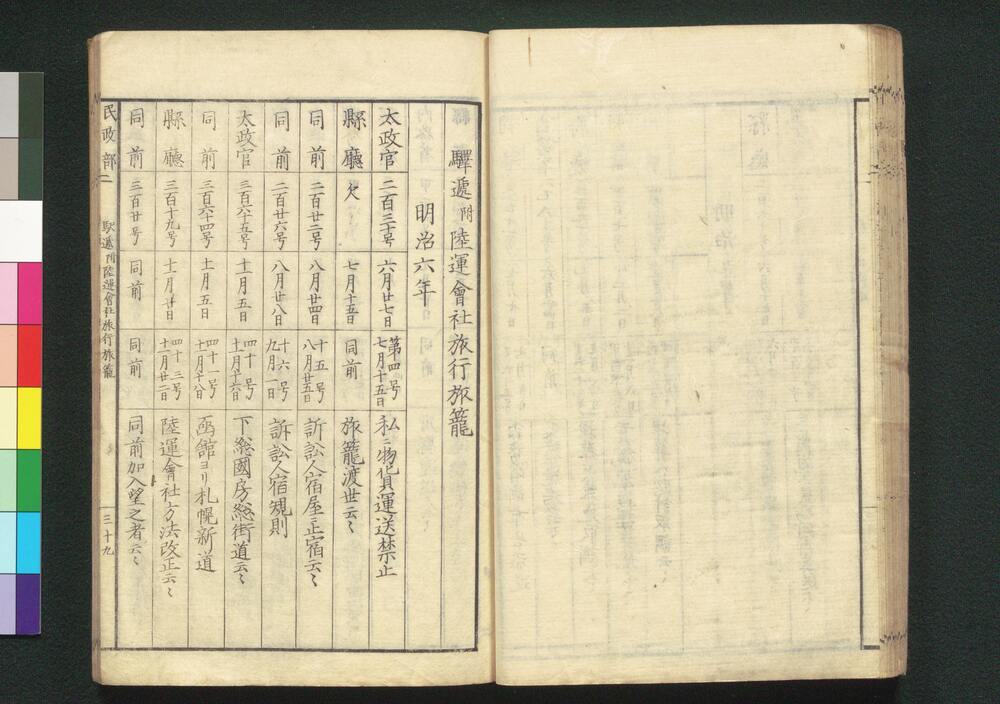 驛遞附陸運會社旅行旅籠
明治六年
太政官 二百三十号 六月廿七日 第四号七月十五日 私ニ物貨運送禁止
縣廳 欠 七月十五日 同前 旅籠渡世云〻
同前 二百廿二号 八月廿四日 十五号八月廿五日 訴訟人宿屋ニ正宿云〻
同前 二百廿六号 八月廿八日 十六号九月一日 訴訟人宿規則
太政官 三百六十五号 十一月五日 四十号十一月十六日 下総國房総街道云〻
同前 三百六十四号 十一月五日 四十一号十一月十八日 凾館ヨリ札幌新道
縣廳 三百十九号 十一月廿日 四十三号十一月廿二日 陸運會社方法改正云〻
同前 三百廿号 同前 同前 同前加入望之者云〻
民政部二 駅逓附陸運會社旅行旅籠 三十九